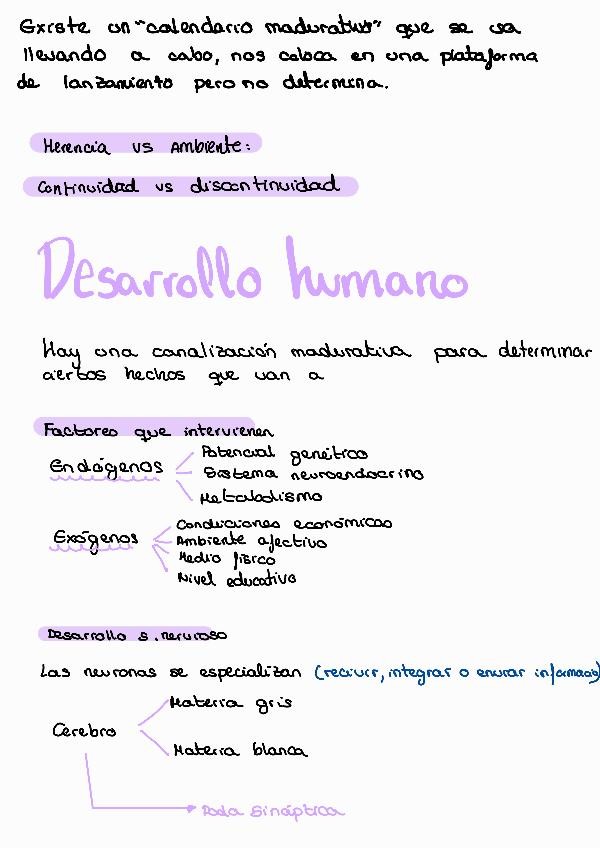 Existe un "calendario madurativo" que se va
llevando a cabo, nos coloca en una plataforma
de lanzamiento pero no determina.
Herencia vs Ambiente:
Continuidad vs discontinuidad
Desarrollo humano
Hay una canalización madurativa para determinar
ciertos hechos que van a
Factores que intervienen
Endógenos
Potencial genético
Sistema neuroendocrino
Metabolismo
Exógenos
Condiciones económicas
Ambiente afectivo
Medio físico
Nivel educativo
Desarrollo s. nervioso
Las neuronas se especializan (recivir, integrar o enviar información)
Cerebro
Materia gris
Materia blanca
Poda sináptica